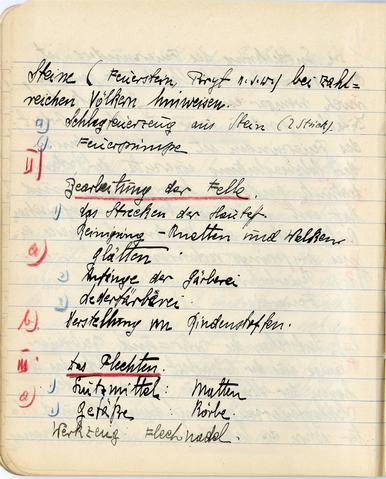 Steine (Feuerstein, Pyrit u.s.w.) bei zahl=
reichen Völkern hinweisen.
a) Schlagfeuerzeug aus Stein (2 Stück)
b) Feuerpumpe
II
Bearbeitung der Felle.
1) das Strecken der Haut
Reinigung - Kneten und Walken
a) Glätten
2) Anfänge der Gärberei
3) Lederfärberei.
b) Herstellung von Rindenstoffen.
III
Das Flechten.
a) 1) Sitzmittel: Matten
2) Gefäße: Körbe.
Werkzeug: Flechnadel.